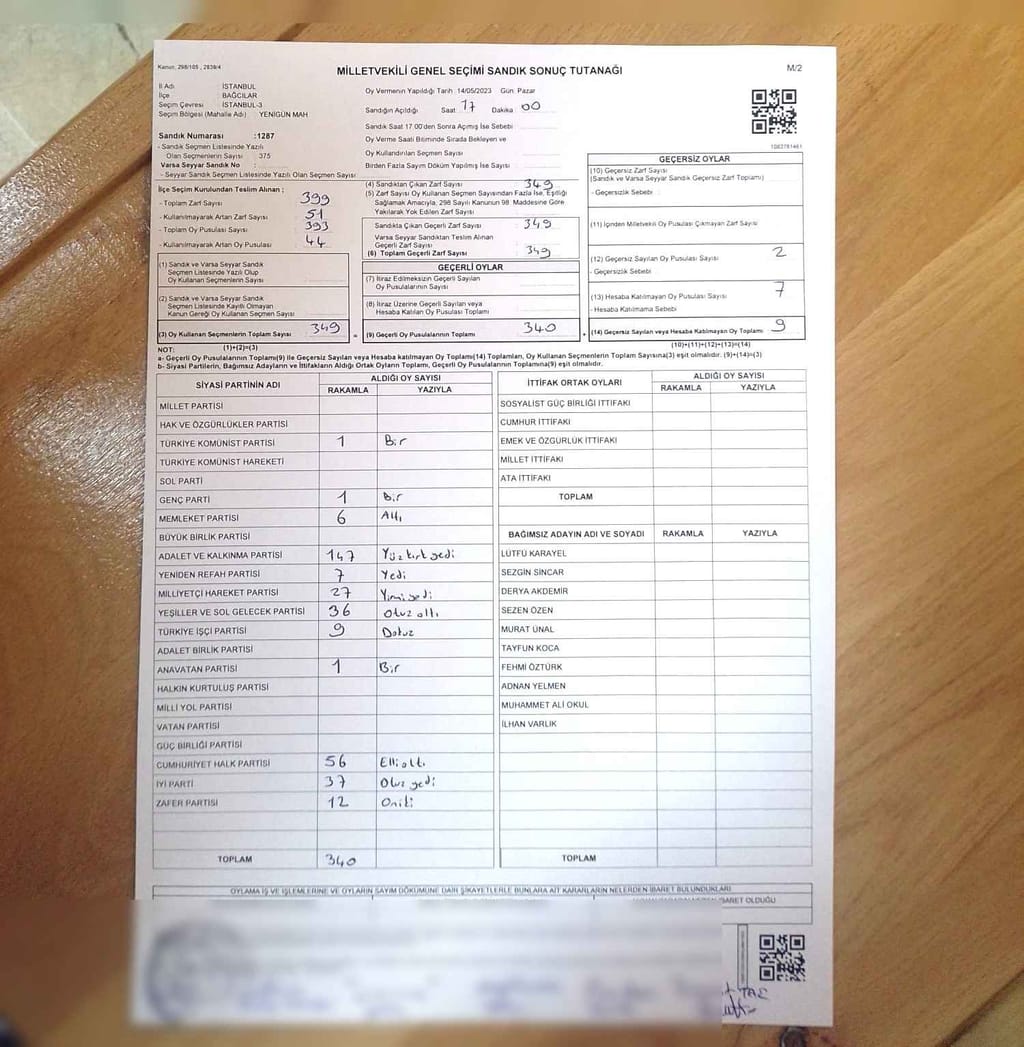 Kanun: 298/105 , 2839/4
MİLLETVEKİLİ GENEL SEÇİMİ SANDIK SONUÇ TUTANAĞI
M/2
İl Adı : İSTANBUL
İlçe : BAĞCILAR
Seçim Çevresi : İSTANBUL-3
Seçim Bölgesi (Mahalle Adı) : YENİGÜN MAH
Sandık Numarası :1287
- Sandık Seçmen Listesinde Yazılı
Olan Seçmenlerin Sayısı : 375
Varsa Seyyar Sandık No :
- Seyyar Sandık Seçmen Listesinde Yazılı Olan Seçmen Sayısı :
Oy Vermenin Yapıldığı Tarih :14/05/2023 Gün: Pazar
Sandığın Açıldığı Saat: 17 Dakika: 00
Sandık Saat 17.00'den Sonra Açmış İse Sebebi :
Oy Verme Saati Bitiminde Sırada Bekleyen ve
Oy Kullandırılan Seçmen Sayısı :
Birden Fazla Sayım Döküm Yapılmış İse Sayısı :
1082781461
İlçe Seçim Kurulundan Teslim Alınan ;
- Toplam Zarf Sayısı : 399
- Kullanılmayarak Artan Zarf Sayısı : 51
- Toplam Oy Pusulası Sayısı : 393
- Kullanılmayarak Artan Oy Pusulası : 44
(1) Sandık ve Varsa Seyyar Sandık
Seçmen Listesinde Yazılı Olup
Oy Kullanan Seçmenlerin Sayısı :
(2) Sandık ve Varsa Seyyar Sandık
Seçmen Listesinde Kayıtlı Olmayan
Kanun Gereği Oy Kullanan Seçmen Sayısı :
(3) Oy Kullanan Seçmenlerin Toplam Sayısı : 349
(1)+(2)=(3)
(4) Sandıktan Çıkan Zarf Sayısı : 349
(5) Zarf Sayısı Oy Kullanan Seçmen Sayısından Fazla İse, Eşitliği
Sağlamak Amacıyla, 298 Sayılı Kanunun 98. Maddesine Göre
Yakılarak Yok Edilen Zarf Sayısı :
Sandıkta Çıkan Geçerli Zarf Sayısı : 349
Varsa Seyyar Sandıktan Teslim Alınan
Geçerli Zarf Sayısı :
(6) Toplam Geçerli Zarf Sayısı : 349
GEÇERLİ OYLAR
(7) İtiraz Edilmeksizin Geçerli Sayılan
Oy Pusulalarının Sayısı :
(8) İtiraz Üzerine Geçerli Sayılan veya
Hesaba Katılan Oy Pusulası Toplamı :
(9) Geçerli Oy Pusulalarının Toplamı : 340
GEÇERSİZ OYLAR
(10) Geçersiz Zarf Sayısı
(Sandık ve Varsa Seyyar Sandık Geçersiz Zarf Toplamı)
- Geçersizlik Sebebi :
(11) İçinden Milletvekili Oy Pusulası Çıkmayan Zarf Sayısı
(12) Geçersiz Sayılan Oy Pusulası Sayısı : 2
- Geçersizlik Sebebi :
(13) Hesaba Katılmayan Oy Pusulası Sayısı : 7
- Hesaba Katılmama Sebebi :
+ (14) Geçersiz Sayılan veya Hesaba Katılmayan Oy Toplamı : 9
(10)+(11)+(12)+(13)=(14)
NOT:
a- Geçerli Oy Pusulalarının Toplamı(9) ile Geçersiz Sayılan veya Hesaba katılmayan Oy Toplamı(14) Toplamları, Oy Kullanan Seçmenlerin Toplam Sayısına(3) eşit olmalıdır. (9)+(14)=(3)
b- Siyasi Partilerin, Bağımsız Adayların ve İttifakların Aldığı Ortak Oyların Toplamı, Geçerli Oy Pusulalarının Toplamına(9) eşit olmalıdır.
SİYASİ PARTİNİN ADI ALDIĞI OY SAYISI
RAKAMLA YAZIYLA
MİLLET PARTİSİ
HAK VE ÖZGÜRLÜKLER PARTİSİ
TÜRKİYE KOMÜNİST PARTİSİ 1 Bir
TÜRKİYE KOMÜNİST HAREKETİ
SOL PARTİ
GENÇ PARTİ 1 Bir
MEMLEKET PARTİSİ 6 Altı
BÜYÜK BİRLİK PARTİSİ
ADALET VE KALKINMA PARTİSİ 147 Yüzkırkyedi
YENİDEN REFAH PARTİSİ 7 Yedi
MİLLİYETÇİ HAREKET PARTİSİ 27 Yirmiyedi
YEŞİLLER VE SOL GELECEK PARTİSİ 36 Otuz altı
TÜRKİYE İŞÇİ PARTİSİ 9 Dokuz
ADALET BİRLİK PARTİSİ
ANAVATAN PARTİSİ 1 Bir
HALKIN KURTULUŞ PARTİSİ
MİLLİ YOL PARTİSİ
VATAN PARTİSİ
GÜÇ BİRLİĞİ PARTİSİ
CUMHURİYET HALK PARTİSİ 56 Elli altı
İYİ PARTİ 37 Otuz yedi
ZAFER PARTİSİ 12 Oniki
TOPLAM 340
İTTİFAK ORTAK OYLARI ALDIĞI OY SAYISI
RAKAMLA YAZIYLA
SOSYALİST GÜÇ BİRLİĞİ İTTİFAKI
CUMHUR İTTİFAKI
EMEK VE ÖZGÜRLÜK İTTİFAKI
MİLLET İTTİFAKI
ATA İTTİFAKI
TOPLAM
BAĞIMSIZ ADAYIN ADI VE SOYADI RAKAMLA YAZIYLA
LÜTFÜ KARAYEL
SEZGİN SİNCAR
DERYA AKDEMİR
SEZEN ÖZEN
MURAT ÜNAL
TAYFUN KOCA
FEHMİ ÖZTÜRK
ADNAN YELMEN
MUHAMMET ALİ OKUL
İLHAN VARLIK
TOPLAM
OYLAMA İŞ VE İŞLEMLERİNE VE OYLARIN SAYIM DÖKÜMÜNE DAİR ŞİKAYETLERLE BUNLARA AİT KARARLARIN NELERDEN İBARET BULUNDUKLARI
İBARET OLDUĞU